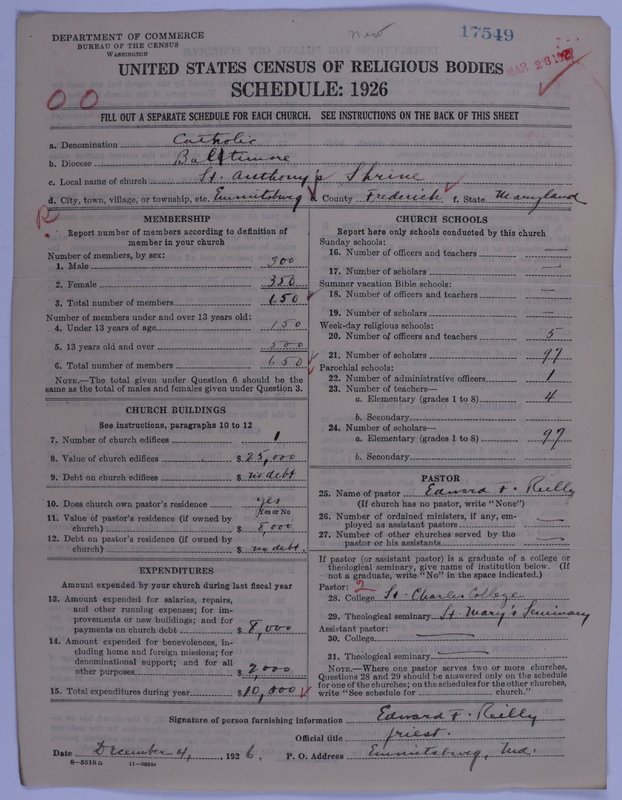 DEPARTMENT OF COMMERCE
BUREAU OF THE CENSUS
WASHINGTON
New
17549
MAR 28 1927
UNITED STATES CENSUS OF RELIGIOUS BODIES
SCHEDULE: 1926
FILL OUT A SEPARATE SCHEDULE FOR EACH CHURCH. SEE INSTRUCTIONS ON THE BACK OF THIS SHEET
a. Denomination Catholic
b. Diocese Baltimore
c. Local name of church St. Anthony's Shrine
d. City, town, village, or township, etc. Emmitsburg County Frederick f. State Maryland
MEMBERSHIP
Report number of members according to definition of
member in your church
Number of members, by sex:
1. Male 300
2. Female 350
3. Total number of members 650
Number of members under and over 13 years old:
4. Under 13 years of age 150
5. 13 years old and over 500
6. Total number of members 650
NOTE.—The total given under Question 6 should be the
same as the total of males and females given under Question 3.
CHURCH BUILDINGS
See instructions, paragraphs 10 to 12
7. Number of church edifices 1
8. Value of church edifices $ 25,000
9. Debt on church edifices $ no debt
10. Does church own pastor's residence yes
Yes or No
11. Value of pastor's residence (if owned by
church) $ 8,000
12. Debt on pastor's residence (if owned by
church) $ no debt.
EXPENDITURES
Amount expended by your church during last fiscal year
13. Amount expended for salaries, repairs,
and other running expenses; for im-
provements or new buildings; and for
payments on church debt $ 8,000
14. Amount expended for benevolences, in-
cluding home and foreign missions; for
denominational support; and for all
other purposes $ 2,000
15. Total expenditures during year $ 10,000
CHURCH SCHOOLS
Report here only schools conducted by this church
Sunday schools:
16. Number of officers and teachers —
17. Number of scholars —
Summer vacation Bible schools:
18. Number of officers and teachers —
19. Number of scholars —
Week-day religious schools:
20. Number of officers and teachers 5
21. Number of scholars 97
Parochial schools:
22. Number of administrative officers 1
23. Number of teachers—
a. Elementary (grades 1 to 8) 4
b. Secondary
24. Number of scholars—
a. Elementary (grades 1 to 8) 97
b. Secondary
PASTOR
25. Name of pastor Edward F. Reilly
(If church has no pastor, write "None")
26. Number of ordained ministers, if any, em-
ployed as assistant pastors —
27. Number of other churches served by the
pastor or his assistants —
If pastor (or assistant pastor) is a graduate of a college or
theological seminary, give name of institution below. (If
not a graduate, write "No" in the space indicated.)
Pastor: 2
28. College St. Charles College
29. Theological seminary St. Mary's Seminary
Assistant pastor:
30. College —
31. Theological seminary —
NOTE.—Where one pastor serves two or more churches,
Questions 28 and 29 should be answered only on the schedule
for one of the churches; on the schedules for the other churches,
write "See schedule for church."
Signature of person furnishing information Edward F. Reilly
Official title priest.
Date December 4, 1926. P. O. Address Emmitsburg, Md.
8—5518a